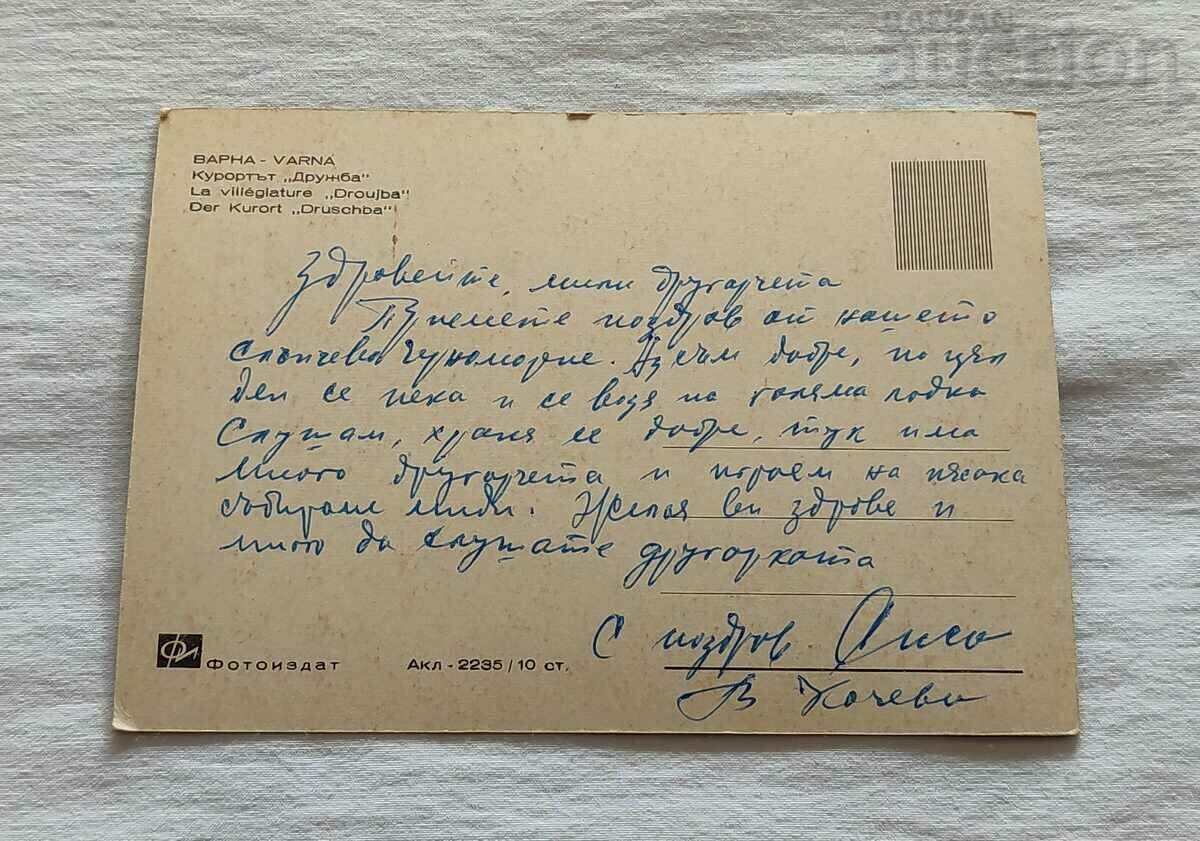 auction
ВАРНА - VARNA
Курортът „Дружба"
La villégiature „Droujba"
Der Kurort „Druschba"
Здравейте, мили другарчета
Приемете поздрав от нашето
слънчево черноморие. Аз съм добре, по цял
ден се пека и се возя на голяма лодка
Слушам, храня се добре, тук има
много другарчета и играем на пясъка
събираме миди. Желая ви здраве и
много да слушате другарката
С поздрав
В Кочеви
Фотоиздат
Акл - 2235/10 ст.